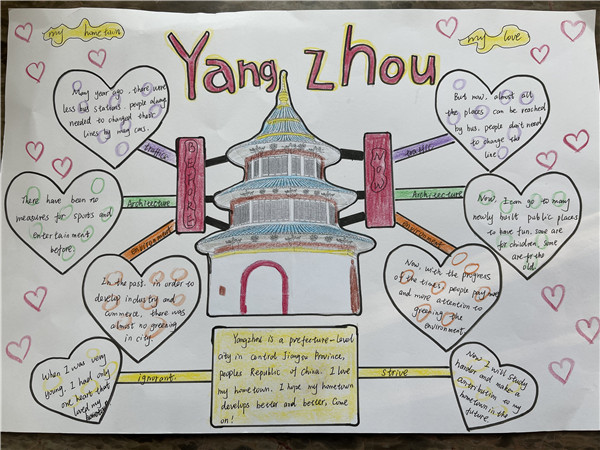 my hometown
my love
Yang zhou
Many year ago, there were
less bus stations people along
needed to changed these
lines by many cars.
traffic
BEFORE
NOW
traffic
But now, almost all
the places can be reached
by bus, people don't need
to change the
line.
There have been no
measures for sports and
entertainment
before.
Architecture
Architecture
Now, I can go to many
newly built public places
to have fun, some are
for children, some
are for the
old.
environment
environment
In the past, in order to
develop industry and
commerce, there was
almost no greening
in city.
Now, with the progress
of the times, people pay more
and more attention to
greening the
environment.
When I was very
young, I had only
one heart that
loved my
ignorant.
Yangzhou is a prefecture-level
city in central Jiangsu Province,
peoples Republic of China. I love
my hometown. I hope my hometown
develops better and better, Come
on!
strive
Now I will study
harder and make a
contribution to my
hometown in the
future.